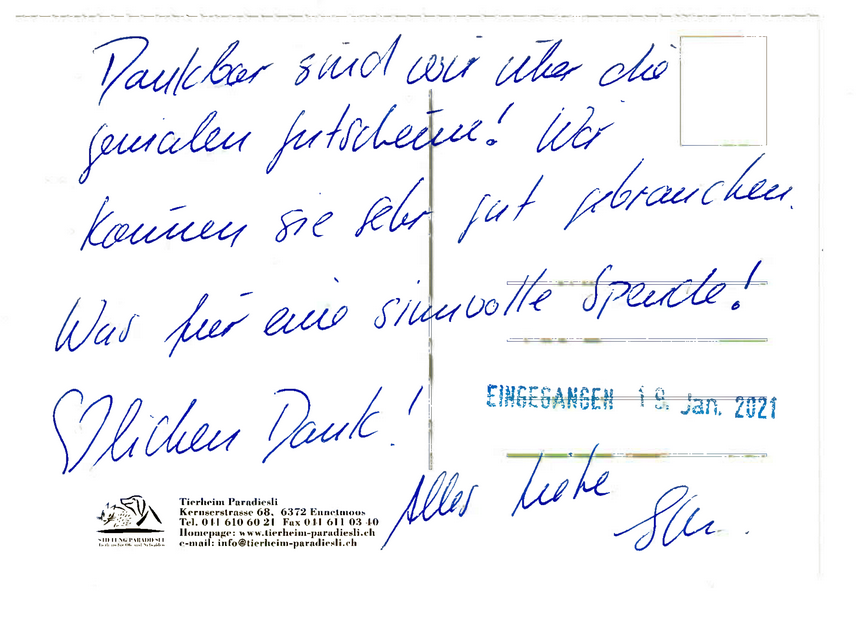 Dankbar sind wir über die
genialen Gutscheine! Wir
können sie sehr gut gebrauchen.
Was für eine sinnvolle Spende!
♡lichen Dank!
EINGEGANGEN 19. Jan. 2021
Alles Liebe
Tierheim Paradiesli
Kernserstrasse 68, 6372 Ennetmoos
Tel. 041 610 60 21 Fax 041 611 03 40
Homepage: www.tierheim-paradiesli.ch
e-mail: info@tierheim-paradiesli.ch
STIFTUNG PARADIESLI